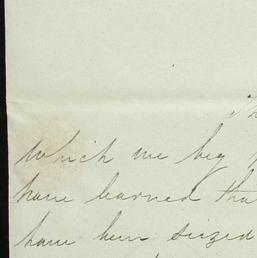 Th
which we beg
have learned tha
have been seized